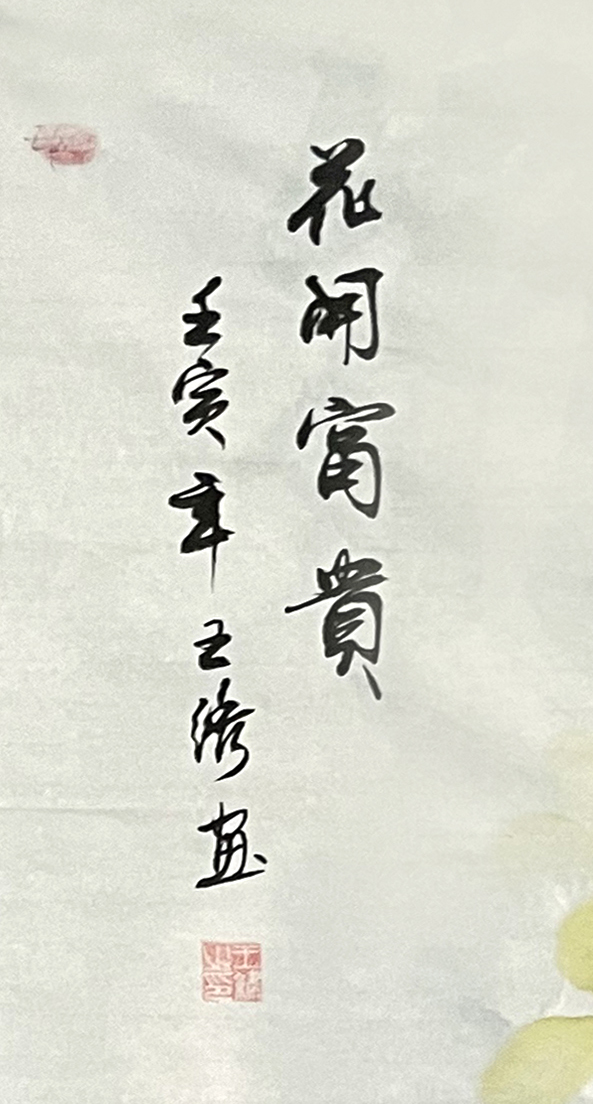 花開富貴
壬寅年王绣画